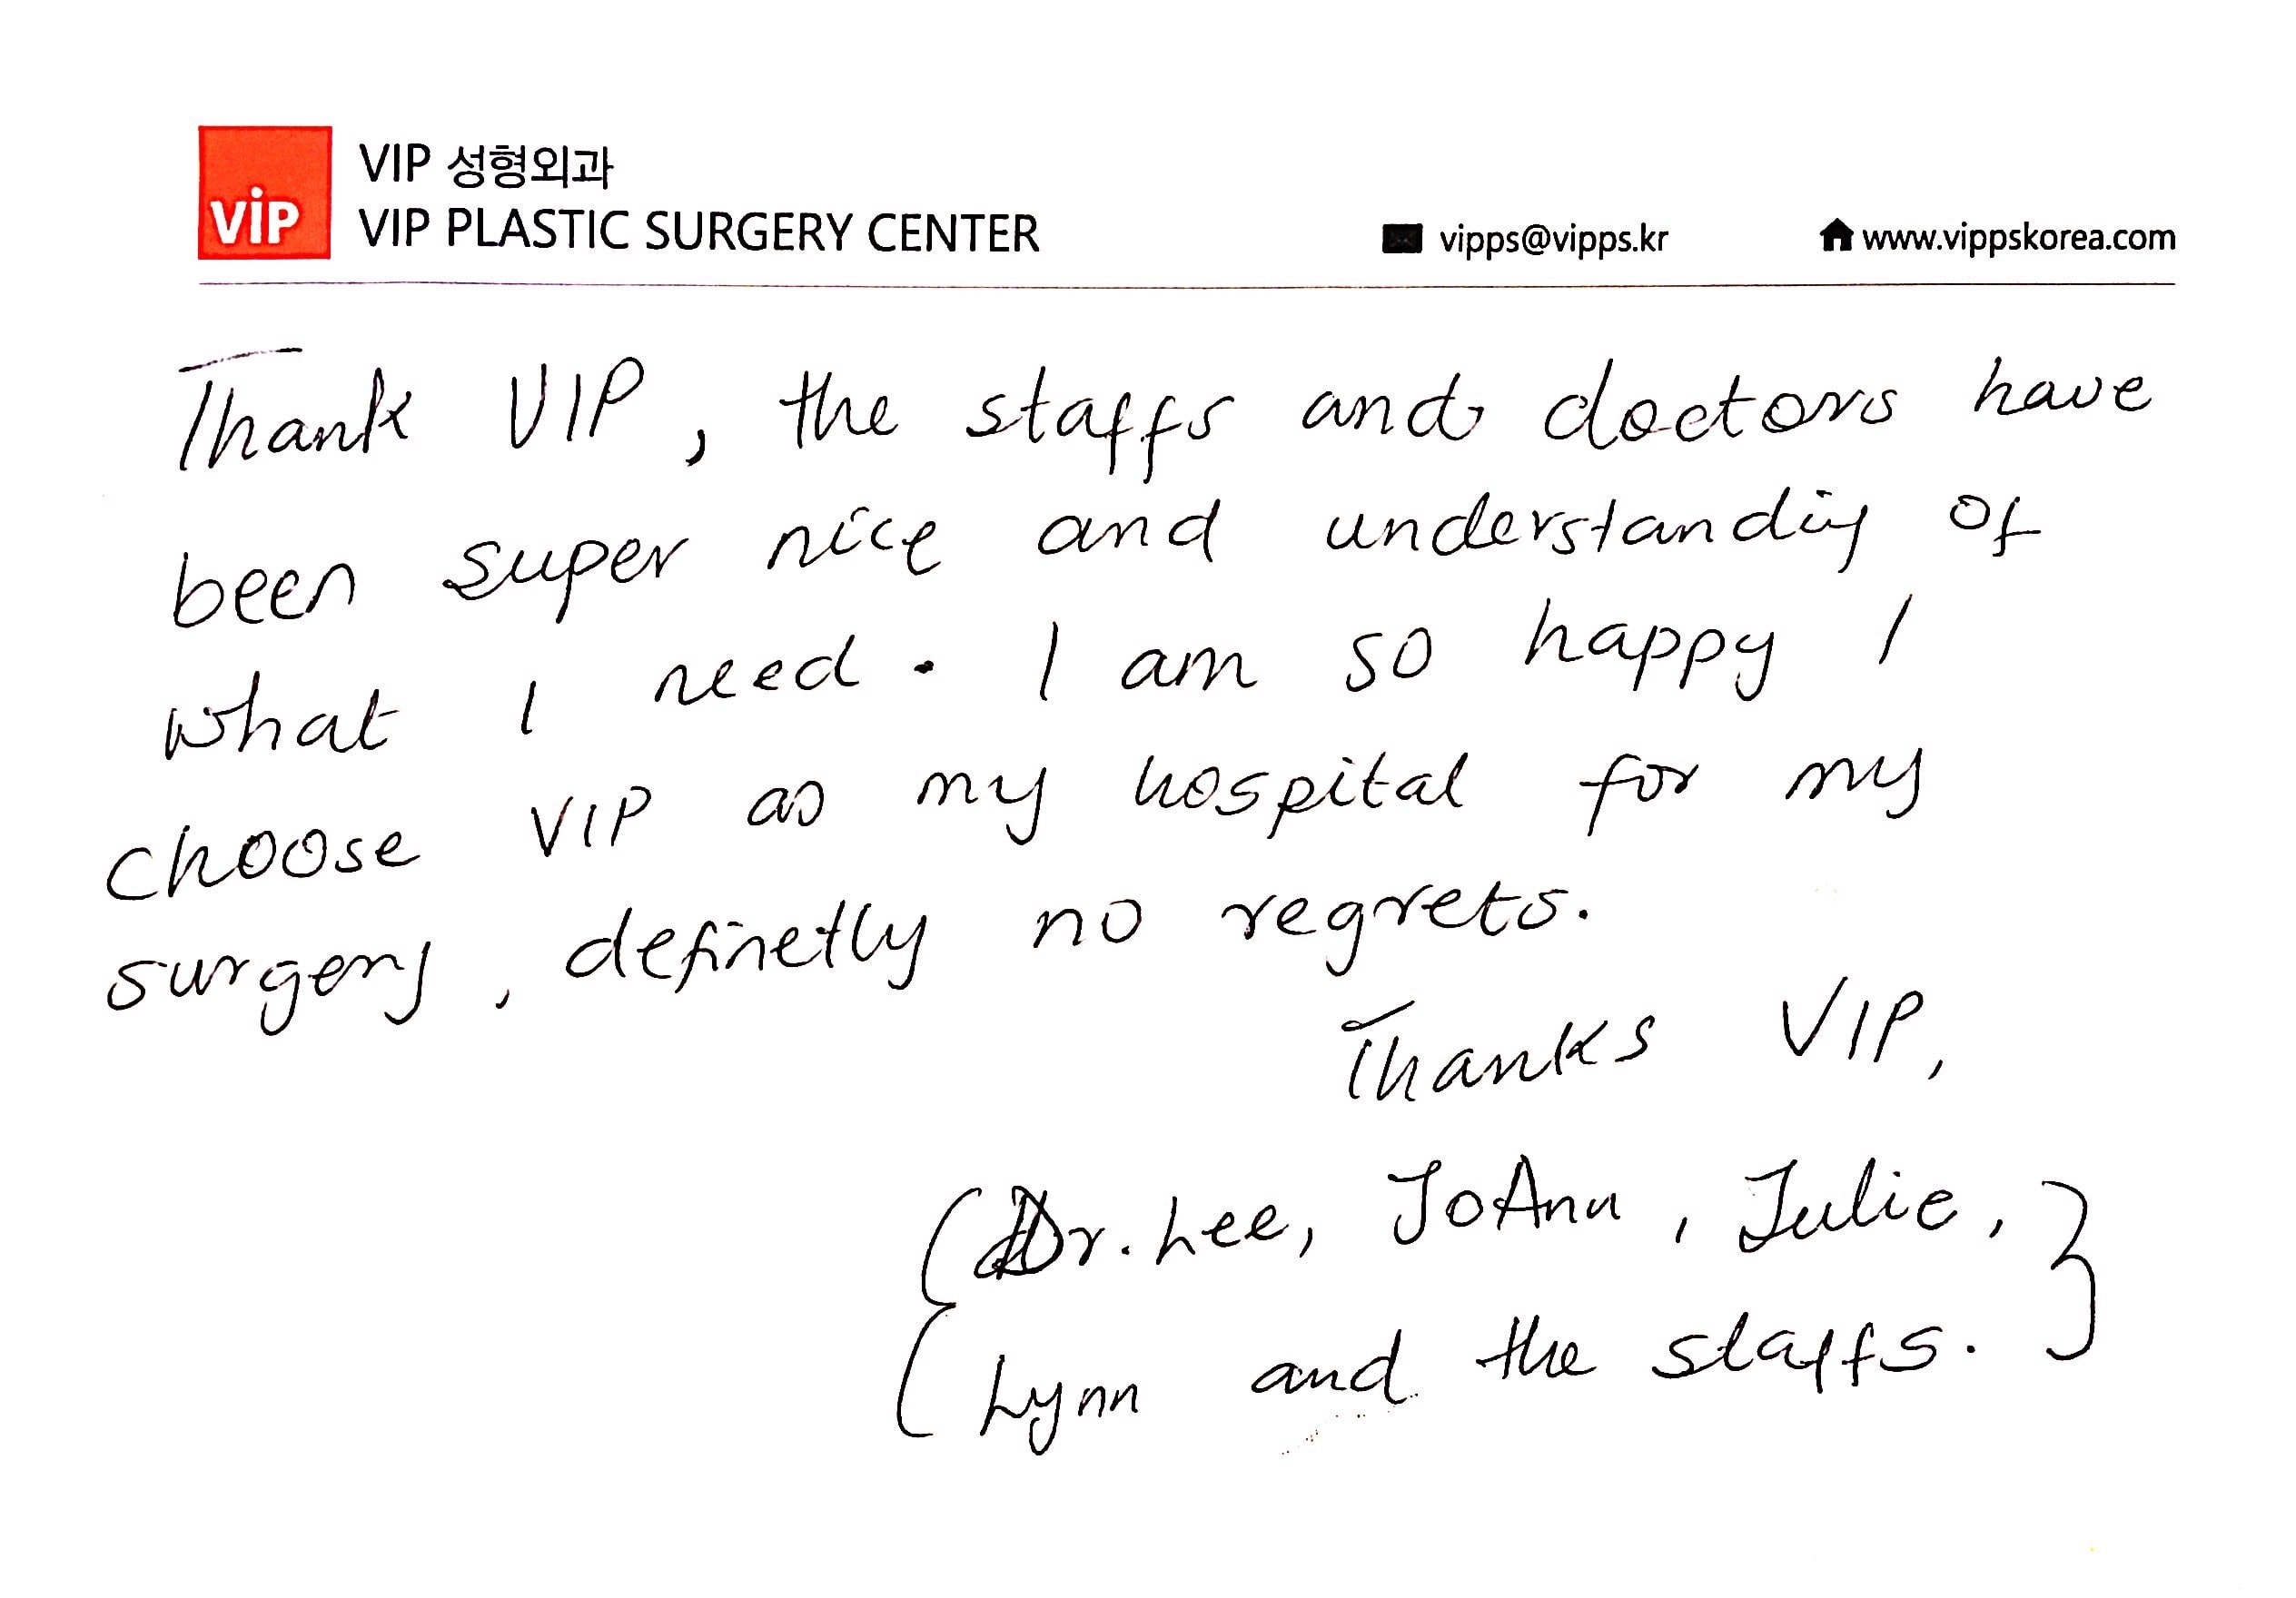 VIP 성형외과
VIP VIP PLASTIC SURGERY CENTER vipps@vipps.kr www.vippskorea.com
Thank VIP, the staffs and doctors have
been super nice and understanding of
what I need. I am so happy I
choose VIP as my hospital for my
surgery, definetly no regrets.
Thanks VIP,
(Dr. Lee, JoAnn, Julie,
Lynn and the staffs.)